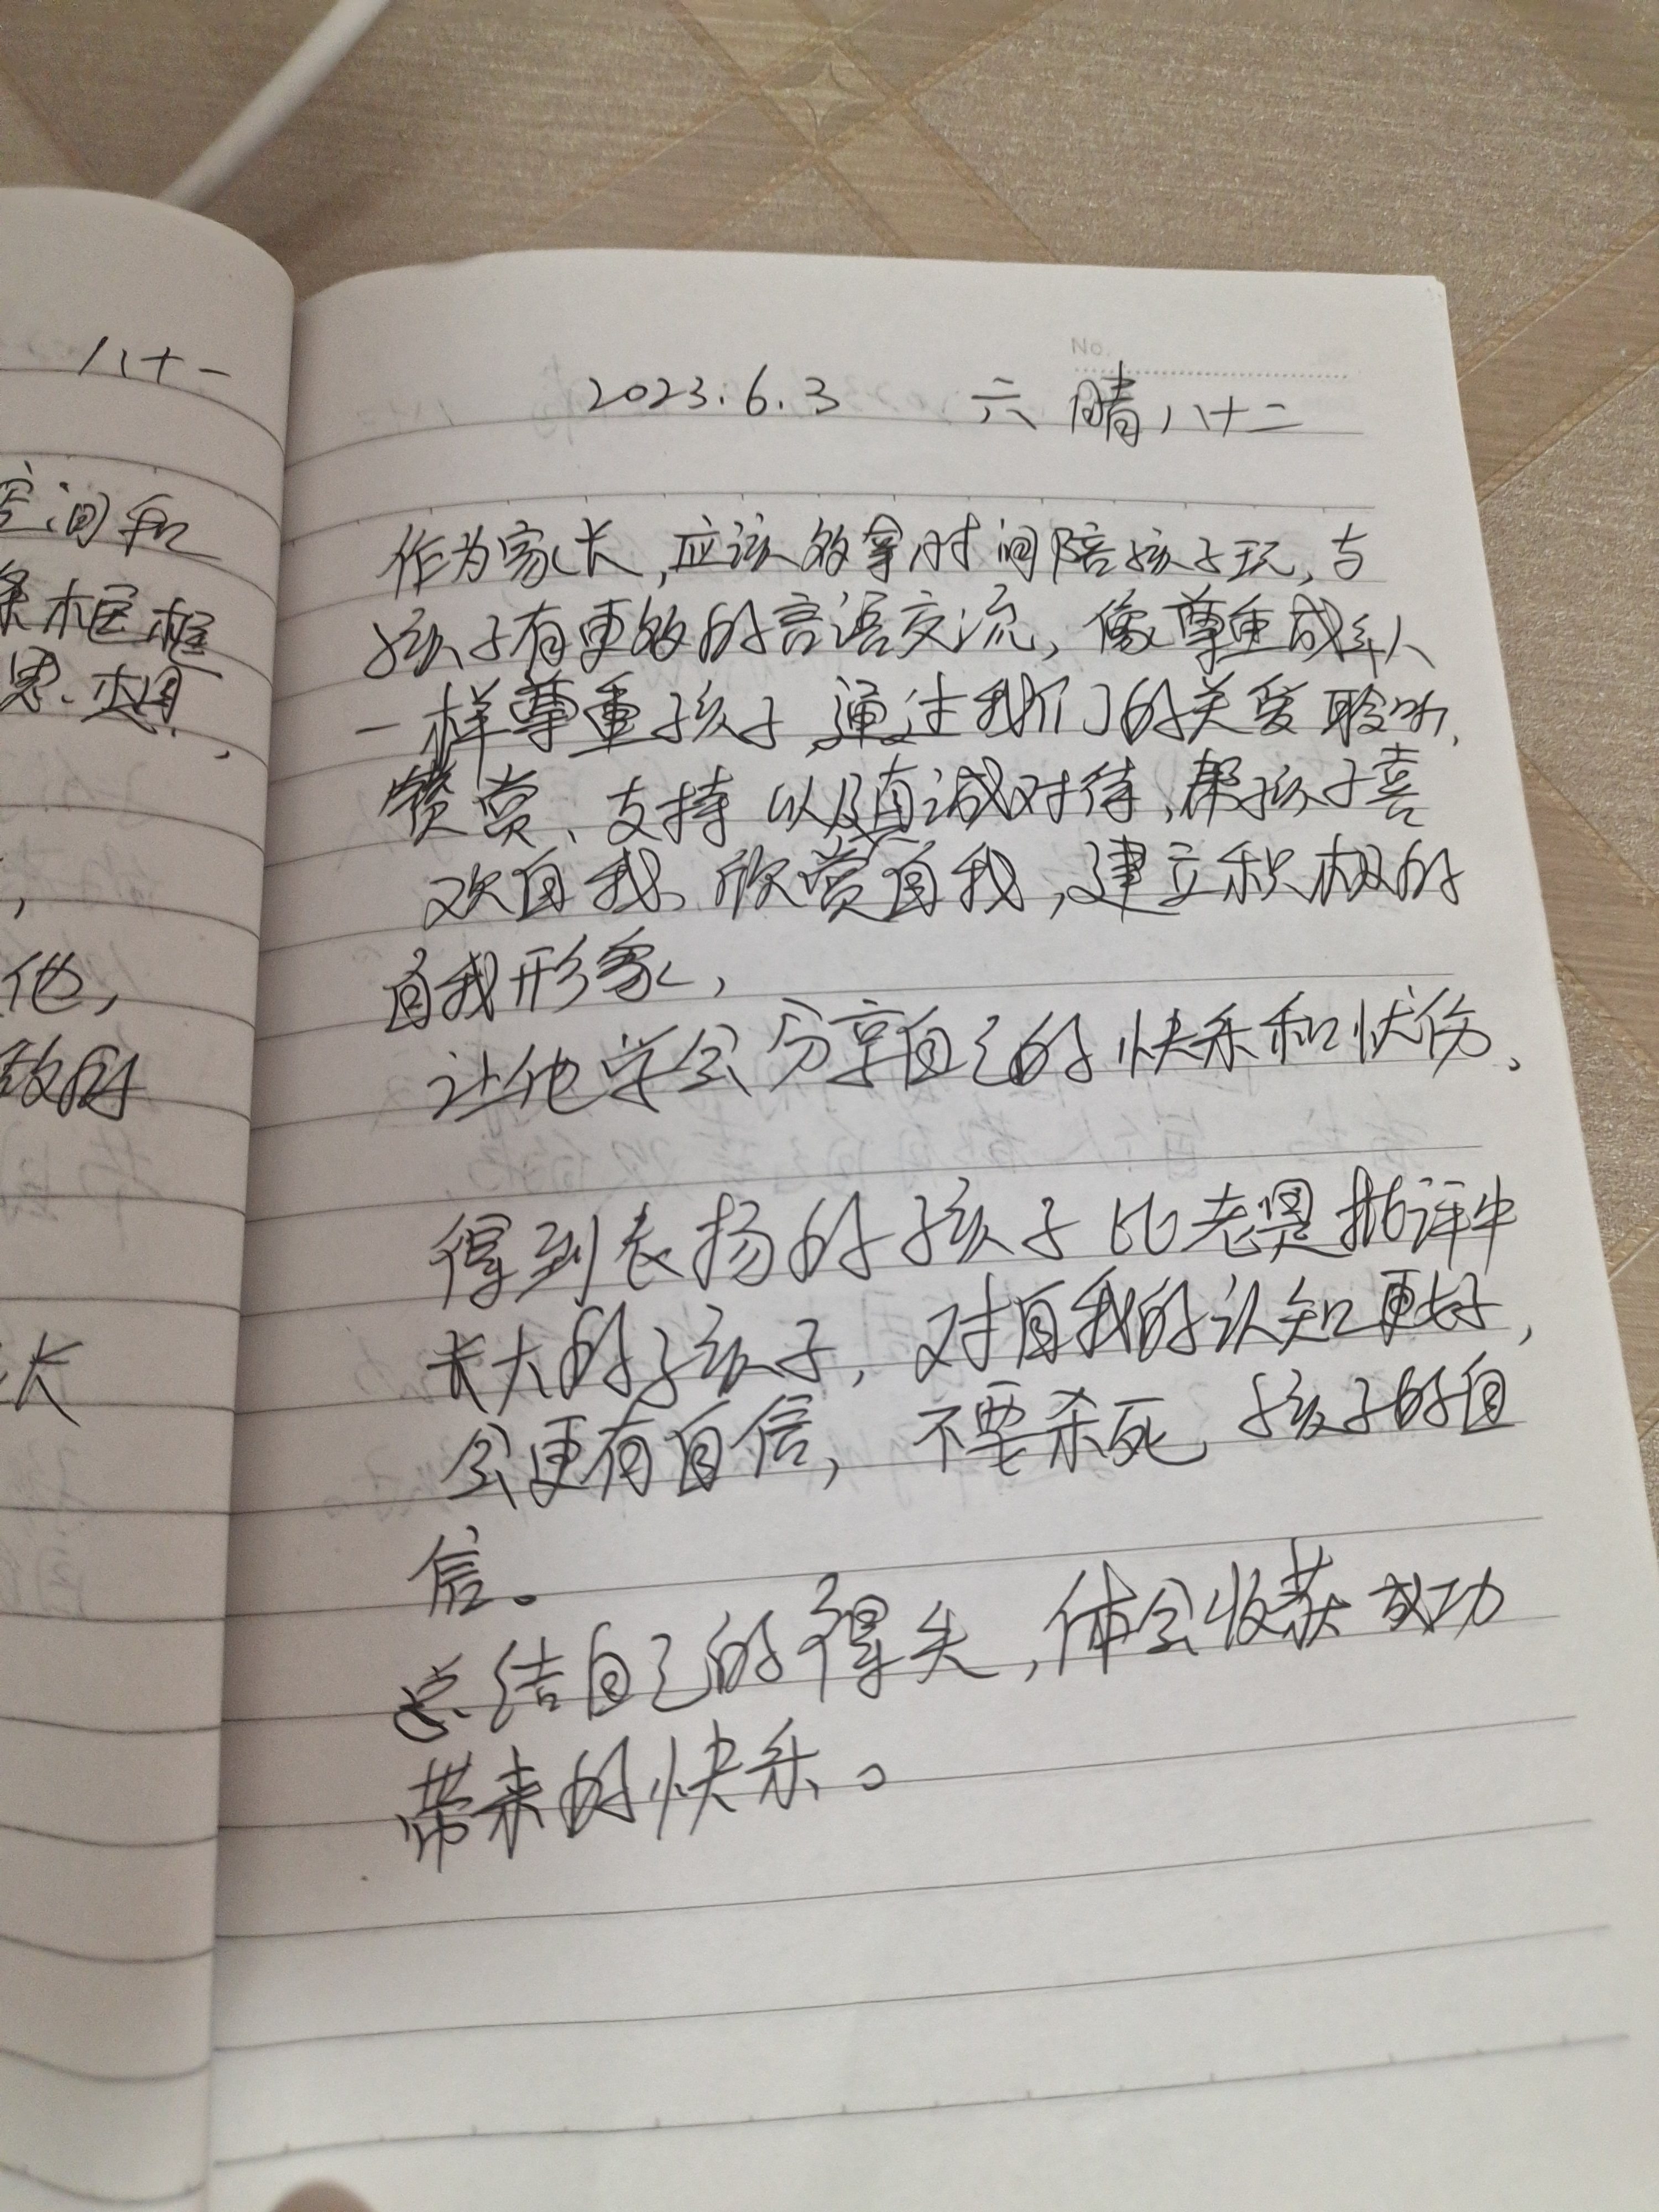 八十一
空间和
条框框
思想,
,
他,
长
No.
2023.6.3 六 晴 八十二
作为家长,应该多拿时间陪孩子玩,与
孩子有更多的言语交流,像尊重成年人
一样尊重孩子,通过我们的关爱 聆听、
赞赏、支持 以及真诚对待,帮孩子喜
欢自我、欣赏自我,建立积极的
自我形象,
让他学会分享自己的快乐和忧伤、
得到表扬的孩子比老是批评中
长大的孩子,对自我的认知更好,
会更有自信,不要杀死 孩子的自
信。
总结自己的得失,体会收获成功
带来的快乐。